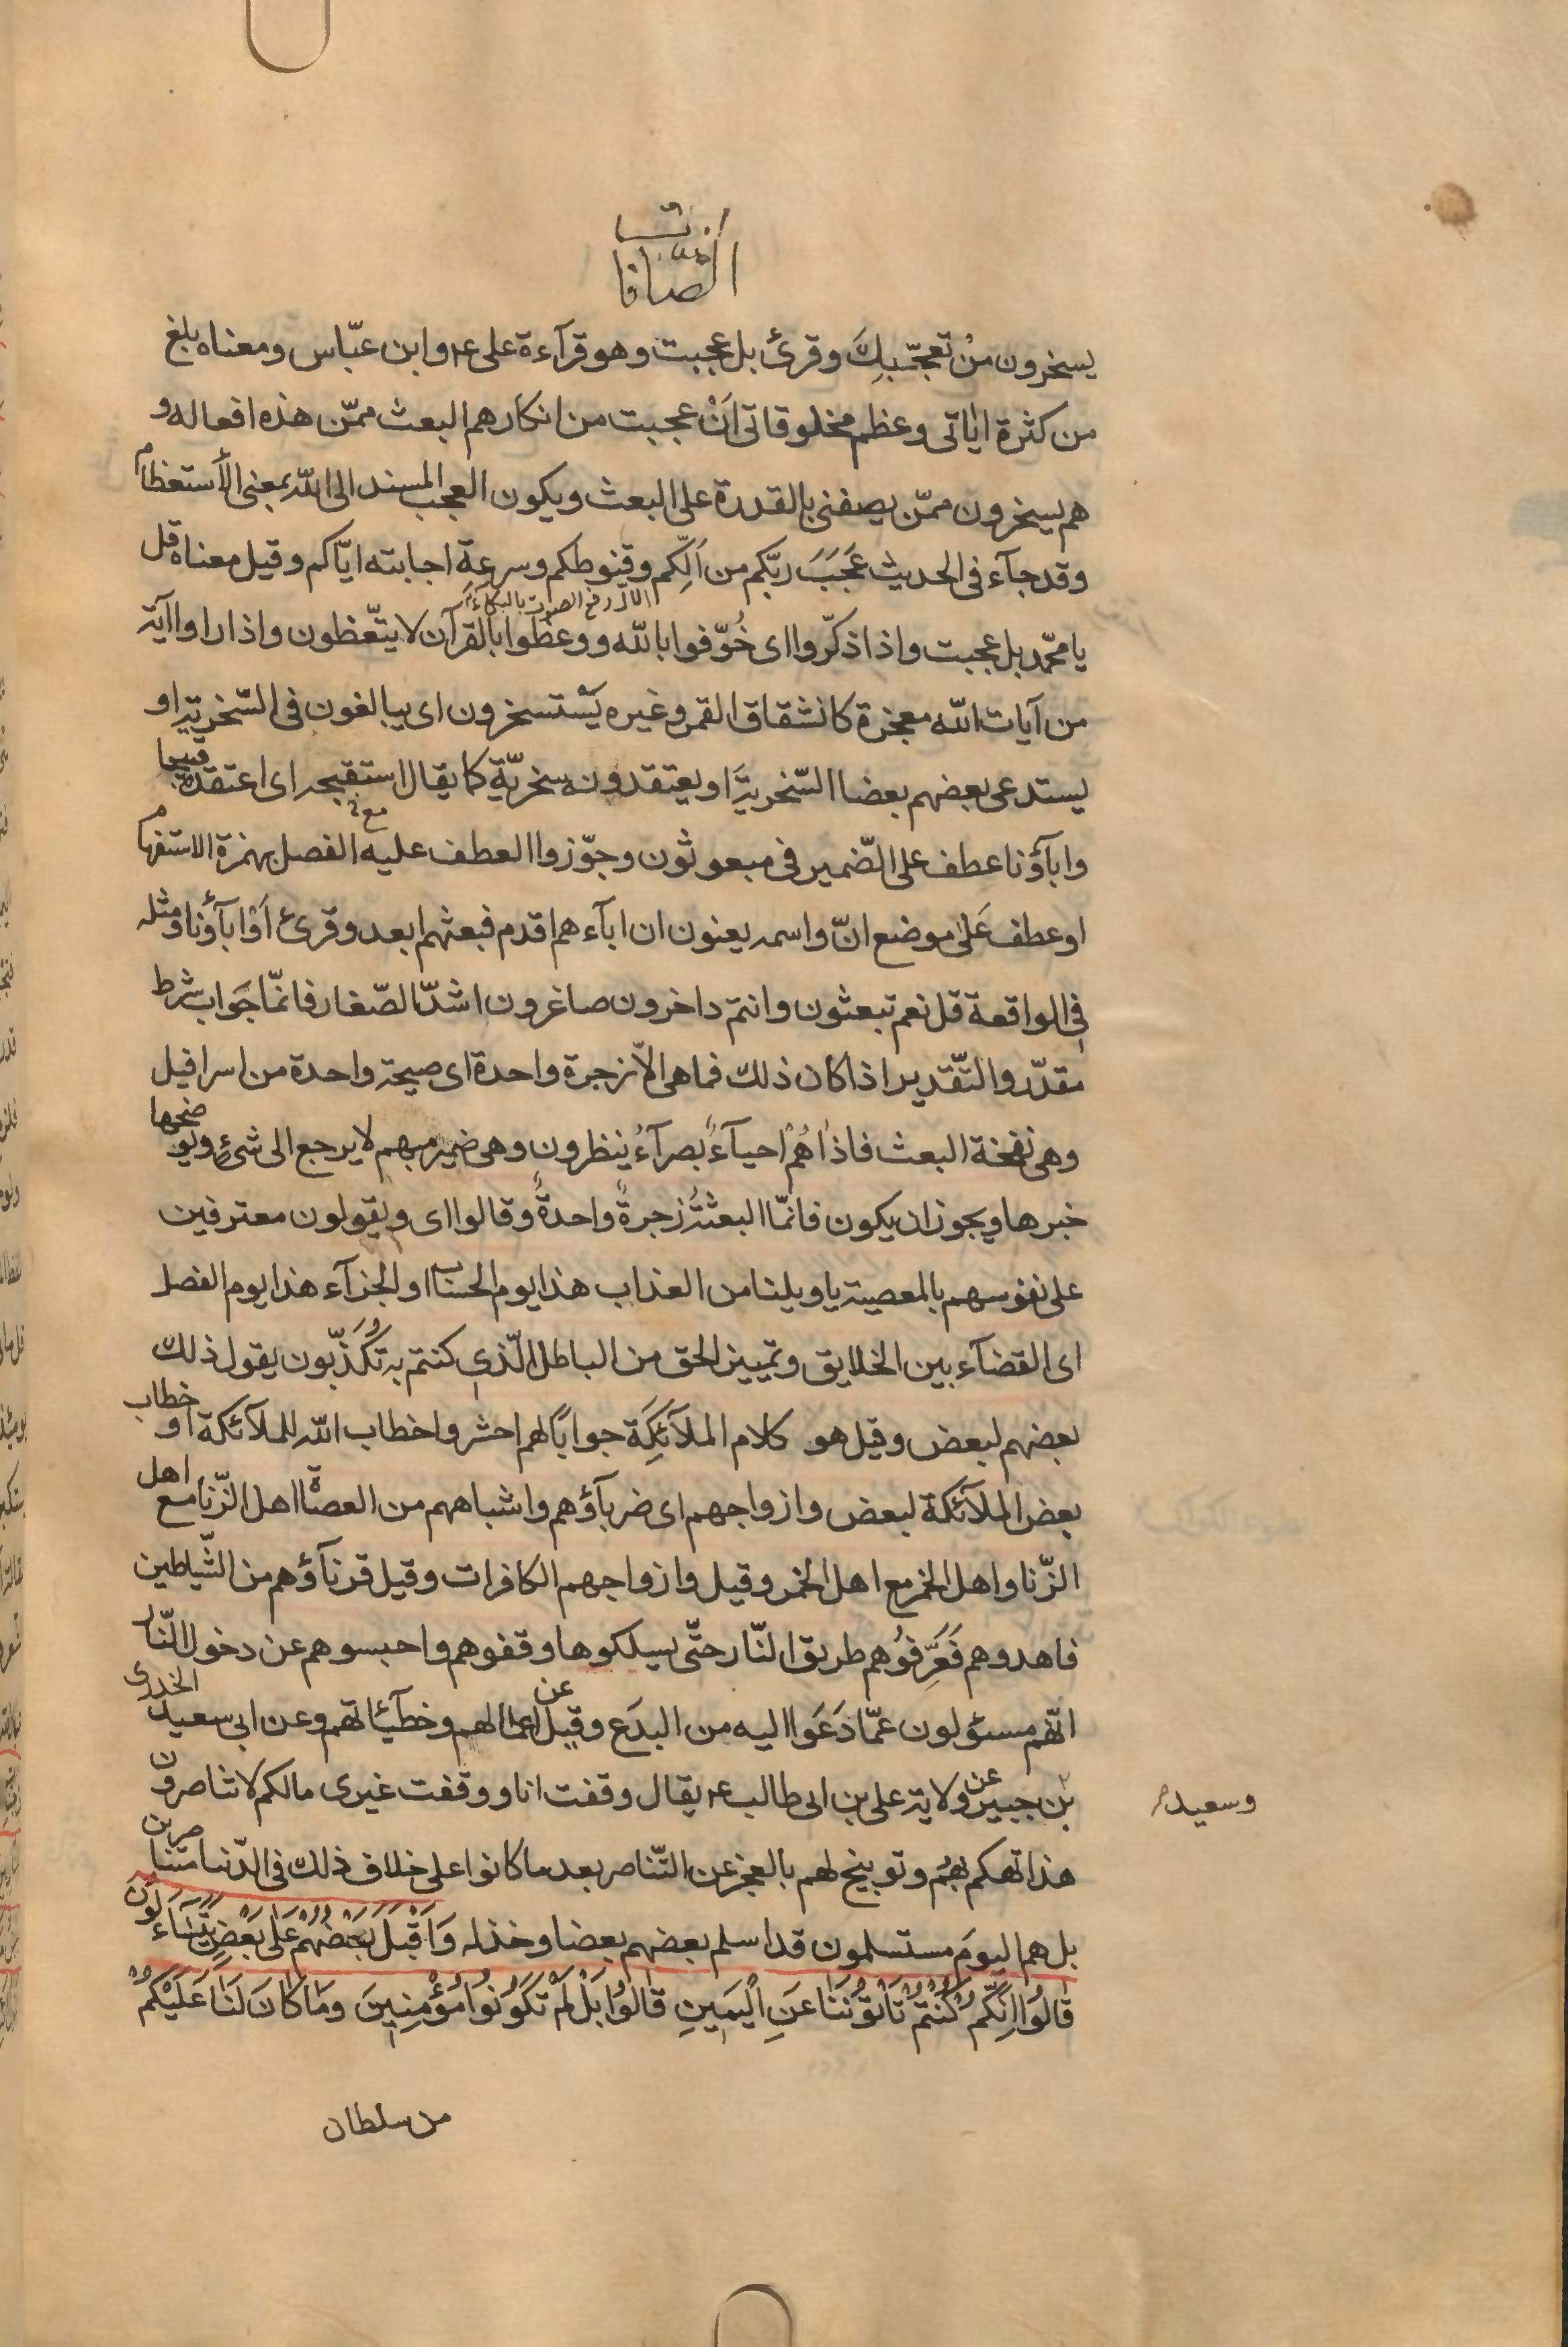 الصّافات
يسخرون منْ تعجّبِكَ وقرئ بل عجبت وهو قرآءة على ع۴ وابن عبّاس ومعناه بلغ
من كثرة اٰياتى وعظم مخلوقاتى اَنْ عجبت من انكارهم البعث ممّن هذه افعاله و
هم يسخرون ممّن يصفنى بالقدرة على البعث ويكون العجب المسند الى اللّه بمعنى الأستعظام
وقد جآء فى الحديث عَجَبَ ربّكم من اَلِّكم وقنوطكم وسرعةِ اجابته ايّاكم وقيل معناه قل
الالّ رفع الصوت بالبكآء
يا محمّد بل عجبت واذا ذكّروا اى خُوّفوا باللّه ووعظوا بالقرآن لا يتّعظون واذا راوا آية
من آيات اللّه معجزة كانشقاق القمر وغيره يَسْتسخرون اى يبالغون فى السّخرية او
يستدعى بعضهم بعضا السّخرية او يعتقدونه سخريّة كما يقال استقبحه اى اعتقده قبيحا
وابآؤنا عطف على الضّمير فى مبعوثون وجوّزوا العطف عليه مع الفصل بهمزة الاستفهام
او عطف عَلىٰ موضع انّ واسمه يعنون ان ابآءهم اقدم فبعثهم ابعد وقرئ اَوْ ابآؤنا ومثله
فى الواقعة قل نعم تبعثون وانتم داخرون صاغرون اشدّ الصّغار فانمّا جَواب شرط
مقدّر والتّقدير اذا كان ذلك فما هى الاّ زجرة واحدة اى صيحة واحدة من اسرافيل
وهى نفخة البعث فاذا هُمْ احيآءٌ بصرآءُ ينظرون وهى ضمير مبهم لا يرجع الى شئٍ ويوضحها
خبرها ويجوز ان يكون فانمّا البعثةُ زجرةٌ واحدةٌ وقالوا اى ويقولون معترفين
على نفوسهم بالمعصية يا ويلنا من العذاب هذا يوم الحساب او الجزآء هذا يوم الفصل
اى القضآء بين الخلايق وتمييز الحق من الباطل الّذى كنتم به تُكَذّبون يقول ذلك
بعضهم لبعض وقيل هو كلام الملآئكَة جوابًا لهم احشروا خطاب اللّه للملآئكة او خطاب
بعض الملآئكة لبعض وازواجهم اى ضربآؤهم واشباههم من العصاة اهل الزّنا مع اهل
الزّنا واهل الخمر مع اهل الخمر وقيل وازواجهم الكافرات وقيل قرنآؤهم من الشّياطين
فاهدوهم فَعَرِّفوُهم طريق النّار حتّى يسلكوها وقفوهم واحبسوهم عن دخول النّار
انّهم مسئولون عمّا دَعَوا اليه من البدَع وقيل عن اعمالهم وخطيٓئاتهم وعن ابى سعيد الخدرى
بن جبير عن ولاية على بن ابى طالب ع۴ يقال وقفت انا ووقفت غيرى مالكم لا تناصرون
وسعيد
هذا تهكم بِهُم وتوبيخ لهم بالعجز عن التّناصر بعد ما كانوا على خلاف ذلك فى الدّنيا متناصرين
بل هم اليومَ مستسلمون قد اسلم بعضهم بعضا وخذله وَاَقْبَلَ بَعْضُهُمْ عَلىٰ بَعْضٍ يَتَسَاۤءَلُونَ
قالُوا اِنّكُمْ كُنْتُمْ تَاْتُونَنا عَنِ الْيَمينِ قالُوا بَلْ لَمْ تَكُونُوا مُؤْمِنينَ وَما كانَ لَنا عَلَيْكُمْ
من سلطان